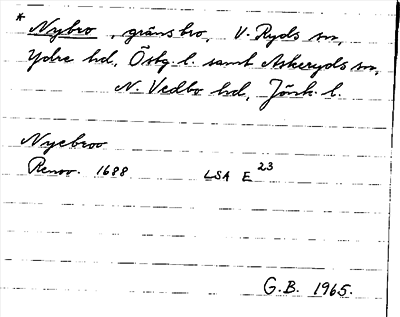 * Nybro, gränsbro, V. Ryds sn,
Ydre hd, Östg. l. samt Askeryds sn,
N. Vedbo hd, Jönk. l.
Nyebroo
Renov. 1688 LSA E 23
G.B. 1965.